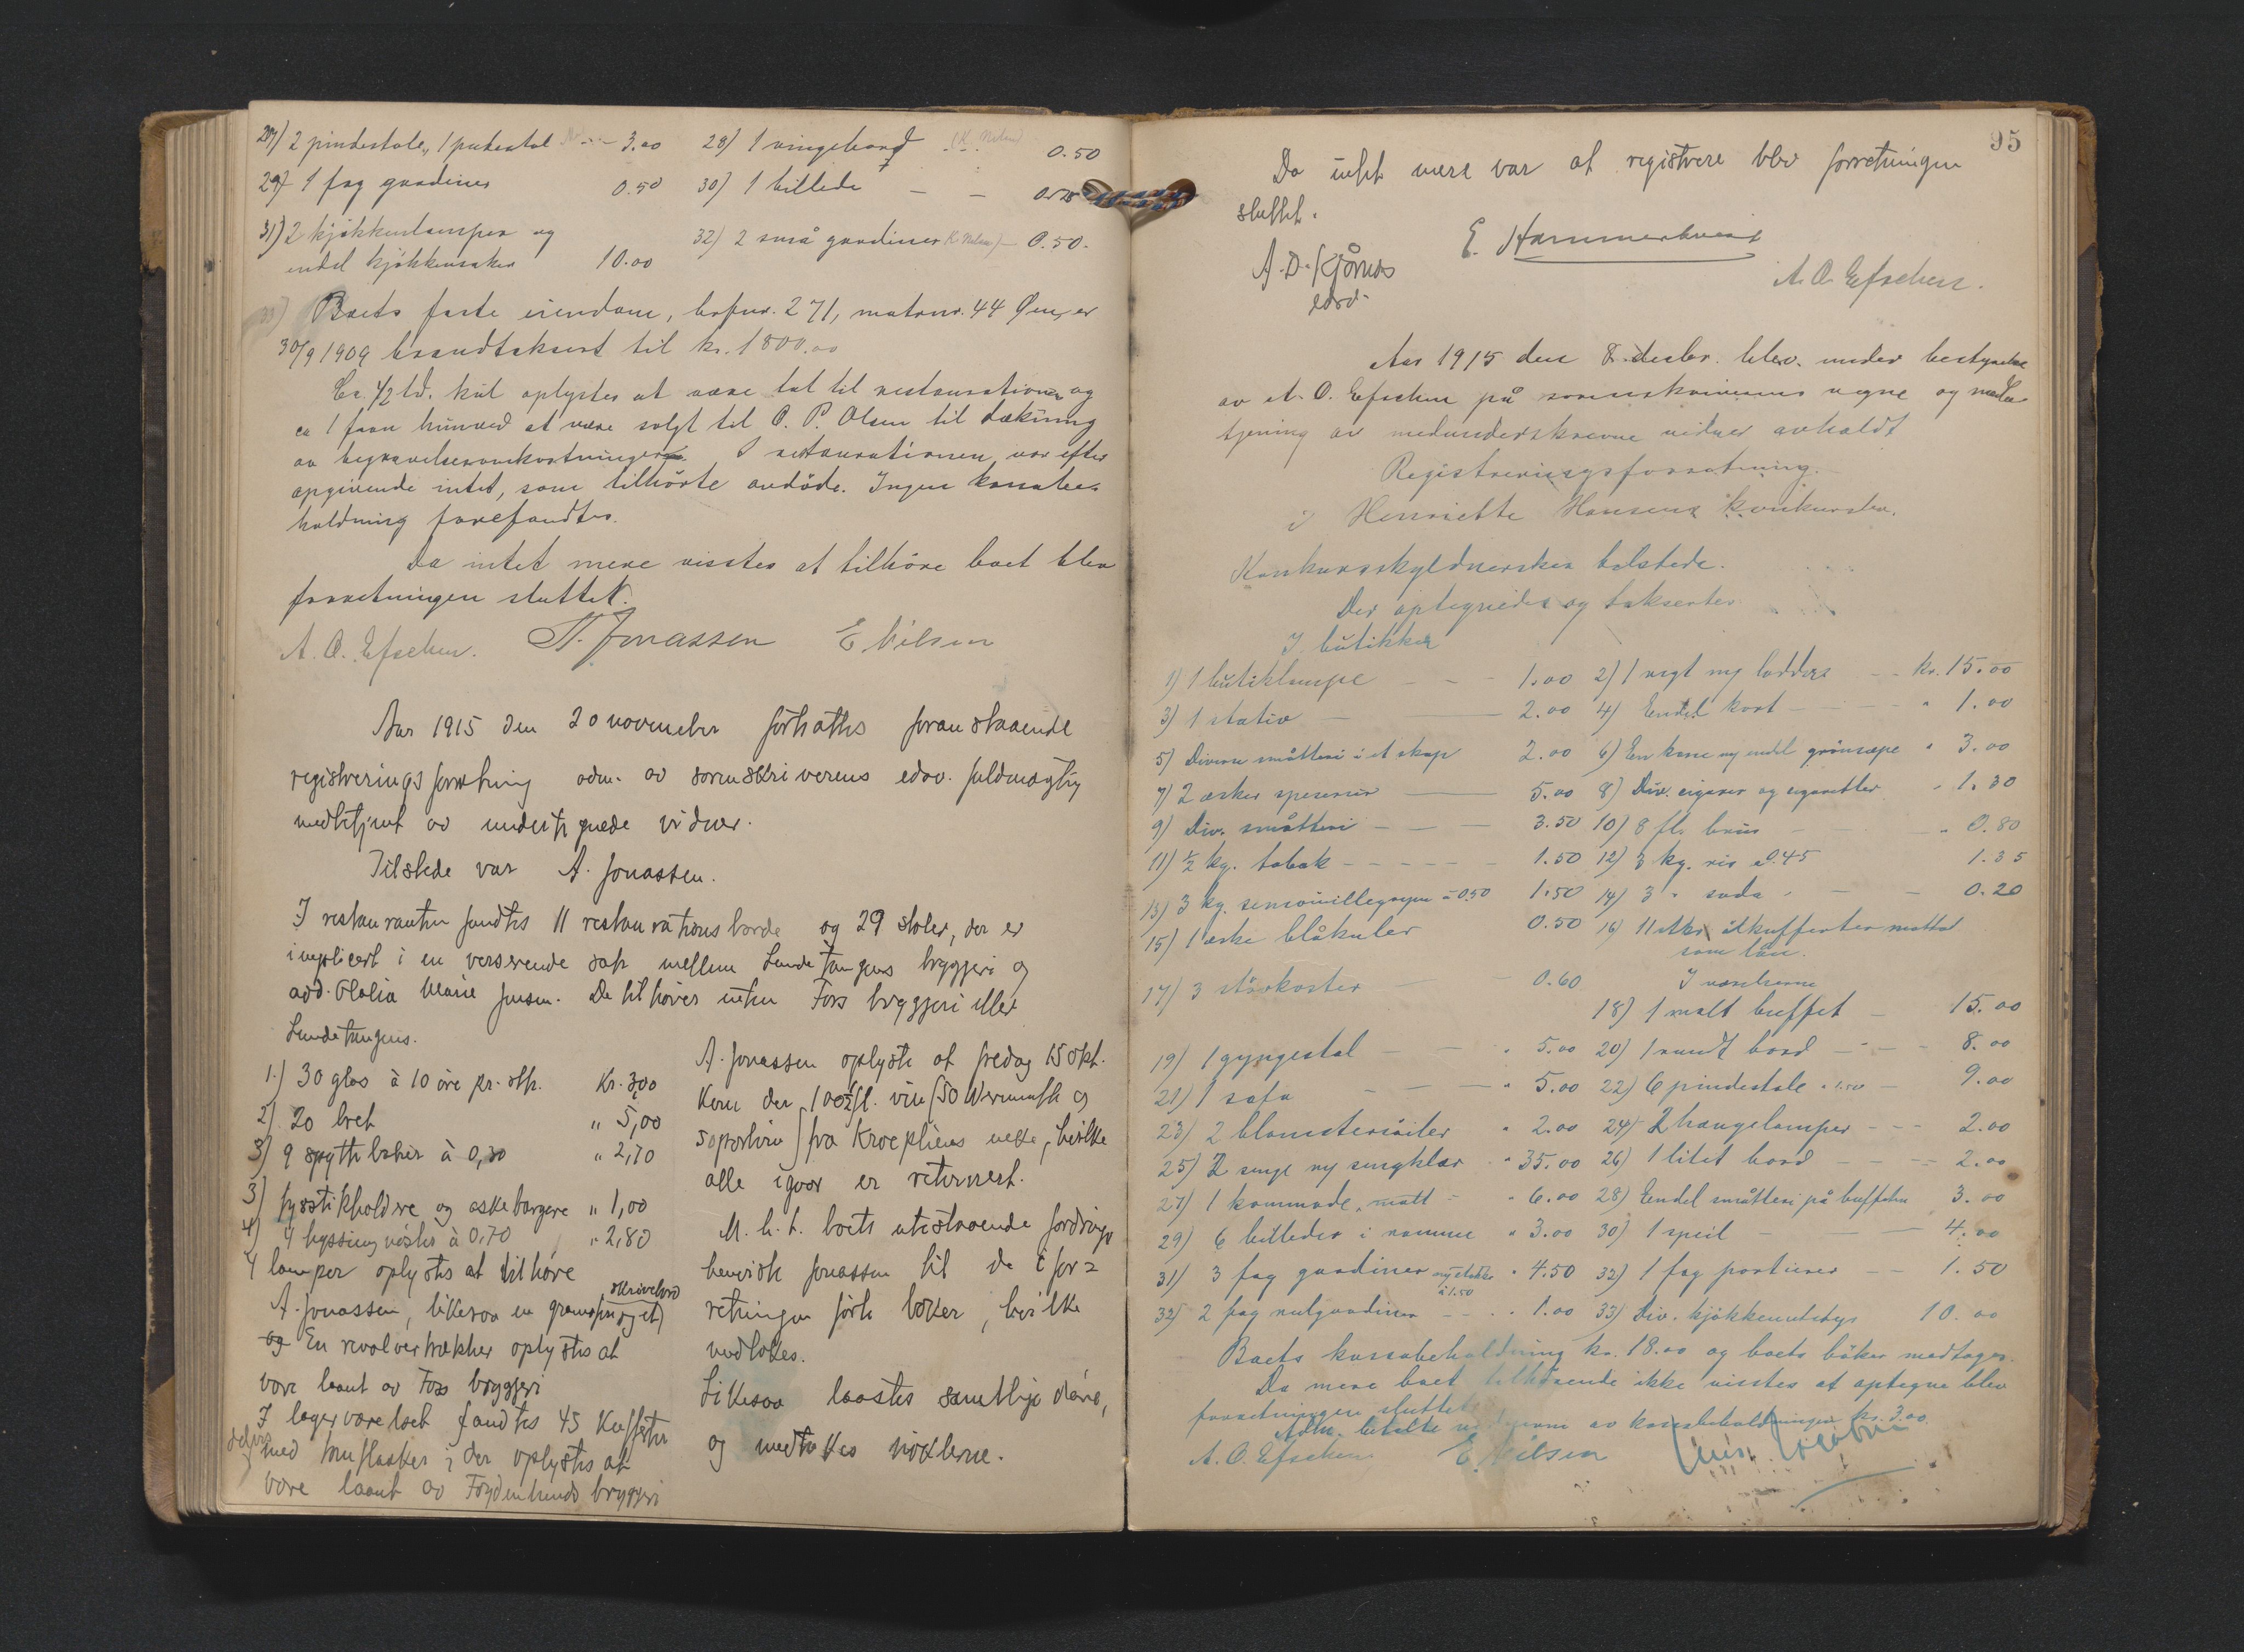 27) 2 pindestole, 1 putestol 3.00 28) 1 ringebord (K. Nilsen) 0.50
29) 1 fag gardiner 0.50 30) 1 billede — — 0.25
31) 2 kjøkkenlamper og
endel kjøkkensaker 10.00 32) 2 små gardiner K. Nilsen) — 0.50.
33) Boets faste eiendom, brpnr. 271, matrnr. 44 Øen, er
30/9 1909 brandtaksert til kr. 1800.00
Ca. 1/2 td. kul oplystes at være tat til restaurationen og
ca 1 favn bunved at være solgt til O. P. Olsen til dækning
av begravelsesomkostninger. I restaurationen var efter
opgivende intet, som tilhørte avdøde. Ingen kassabe-
holdning forefandtes.
Da intet mere visstes at tilhøre boet blev
forretningen sluttet.
A. O. Efschen. A. Jonassen E Nilsen
Aar 1915 den 20 november fortsattes foranstaaende
registreringsforretning adm. av sorenskriverens edsv. fuldmægtig
medbetjent av undertegnede vidner.
Tilstede var A. Jonassen.
I restauranten fandtes 11 restaurationsborde og 29 stoler, der er
implicert i en verserende sak mellem Lundetangens bryggeri og
avd. Olalia Marie Jensen. De tilhører enten Foss bryggeri eller
Lundetangens.
1.) 30 glas à 10 øre pr. stk. Kr. 3,00
2) 20 bret " 5,00
3) 9 spyttebakker à 0,30 " 2,70
3) fyrstikholdere og askebægere " 1,00
4) 4 à 0,70 " 2,80
4 lamper oplystes at tilhøre
A. Jonassen, likesaa en gramofon og et skrivebord
og En revolvertrækker oplystes at
være laant av Foss bryggeri
I lagerværelset fandtes 45 Kufferter
delvis med tomflasker, der oplystes at
være laant av Frydenlunds bryggeri
A. Jonassen oplyste at fredag 15 okt.
kom der 100 1/2 fl. vin (50 Vermuth og
50 portvin) fra Kroepliens , hvilke
alle igaar er returnert.
M. h. t. boets utestaaende fordringer
henviste Jonassen til de i for-
retningen førte bøker, hvilke
vedlokes.
Likesaa laastes samtlige døre,
og medtokes nøklerne.
95
Da intet mere var at registrere blev forretningen
sluttet.
A. D. Kjørnes E. Hammerkvist
edsv. A. O. Efschen.
Aar 1915 den 8. desbr. blev under bestyrelse
av A. O. Efschen på sorenskriverens vegne og
tjening av medunderskrevne vidner avholdt
Registreringsforretning.
i Henriette Hansens konkursbo.
Konkursskyldnersken tilstede.
Der optegnedes og taksertes
I butikken
1) 1 butiklampe — — — 1.00 2) 1 vegt og lodder — — kr. 15.00
3) 1 stativ — — 2.00 4) Endel kort — — — " 1.00
5) Diverse småtteri i et skap 2.00 6) En kasse og endel grønsæpe " 3.00
7) 2 æsker speserier — 5.00 8) Div. cigarer og cigaretter " 1.30
9) Div. småtteri — — — 3.50 10) 8 fl. brus — " 0.80
11) 1/2 kg. tobak — — — — 1.50 12) 3 kg. ris à 0.45 1.35
13) 3 kg. semouillegryn à 0.50 1.50 14) 3 " soda — — 0.20
15) 1 æske blåkuler 0.50 16) 11 stkr ølkufferter mottat
som lån.
17) 3 størkoster — — 0.60 I værelserne
18) 1 malt buffet — 15.00
19) 1 gyngestol — — " 5.00 20) 1 rundt bord — — — 8.00
21) 1 sofa — — — " 5.00 22) 6 pindestole à 1.50 — 9.00
23) 2 blomstersøiler " 2.00 24) 2 hængelamper — — — 2.00
25) 2 senge og sengklær " 35.00 26) 1 litet bord — — 2.00
27) 1 kommode, malt — " 6.00 28) Endel småtteri på buffeten 3.00
29) 6 billeder i ramme " 3.00 30) 1 speil — — 4.00
31) 3 fag gardiner à 1.50 " 4.50 32) 1 fag portierer — — 1.50
32) 2 fag rulgardiner — — " 1.00 33) Div. kjøkkenutstyr 10.00
Boets kassabeholdning kr. 18.00 og boets bøker medtoges.
Da mere boet tilhørende ikke visstes at optegne blev
forretningen sluttet.
Adm. betalte av kassabeholdningen kr. 3.00.
A. O. Efschen E. Nilsen